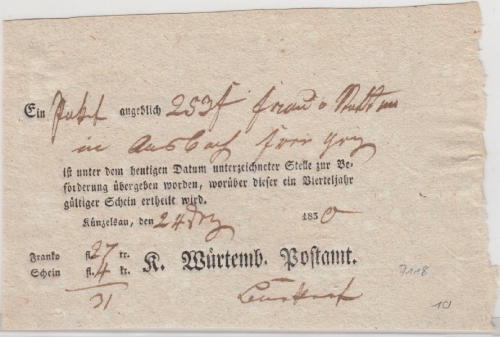 Ein Paket angeblich 253 f
in Ansbach
ist unter dem heutigen Datum unterzeichneter Stelle zur Be-
förderung übergeben worden, worüber dieser ein Vierteljahr
gültiger Schein ertheilt wird.
Künzelsau, den 24 Dez 1850
Franko fl. 27 kr.
Schein fl. 4 kr.
31
K. Würtemb. Postamt.
7118
10